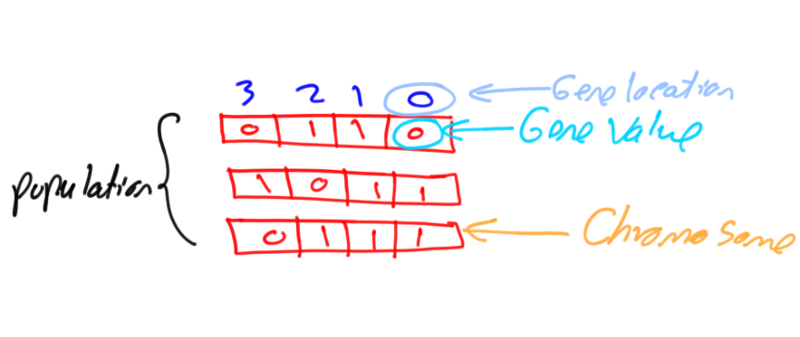 3 2 1 0 Gene location
0 1 1 0 Gene Value
population
1 0 1 1
0 1 1 1 Chromosome